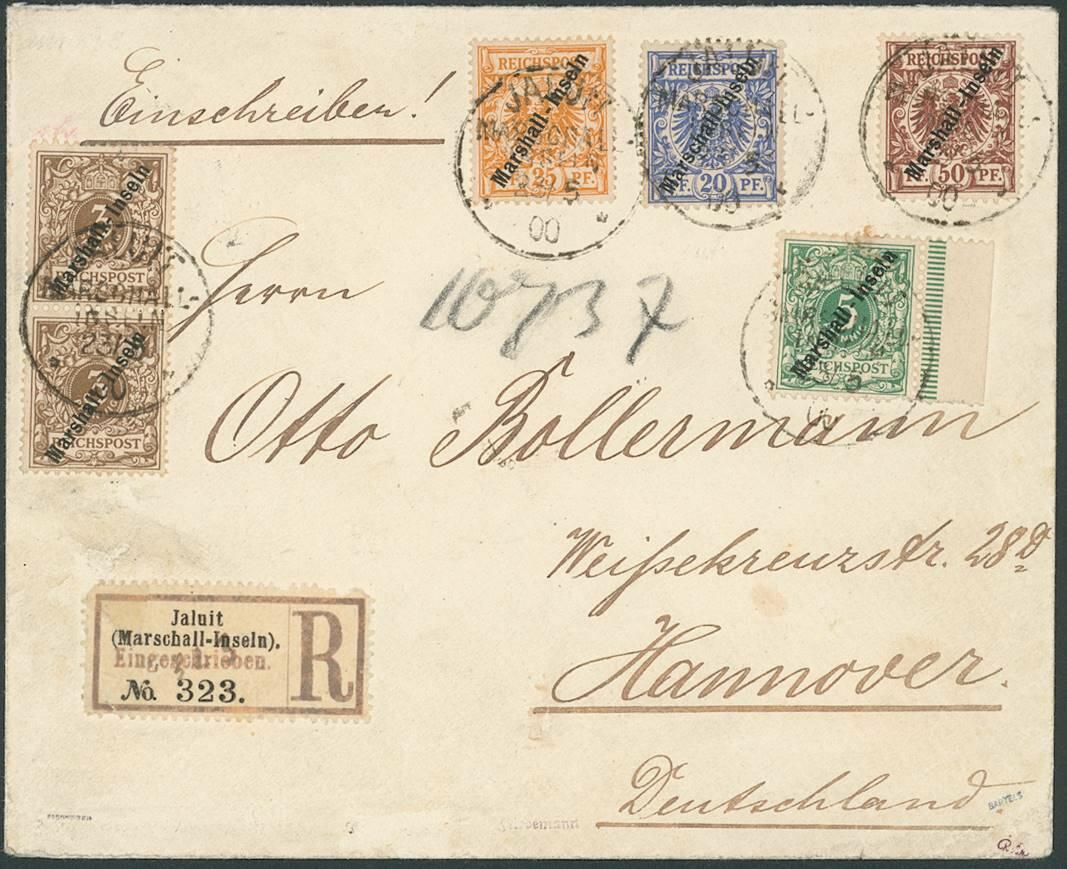 Einschreiben!
REICHSPOST
Marshall-Inseln
25 PF.
JALUIT
23/5
00
REICHSPOST
Marschall-Inseln
PF. 20 PF.
REICHSPOST
Marshall-Inseln
50 PF.
00
3
Marshall-Inseln
REICHSPOST
JALUIT
MARSCHALL-
INSELN
3
Marshall-Inseln
REICHSPOST
5
Marshall-Inseln
REICHSPOST
Herrn
Otto Bollermann
Weißekreuzstr. 28d
Hannover.
Deutschland
Jaluit
(Marschall-Inseln).
Eingeschrieben.
No. 323.
R
BARTELS